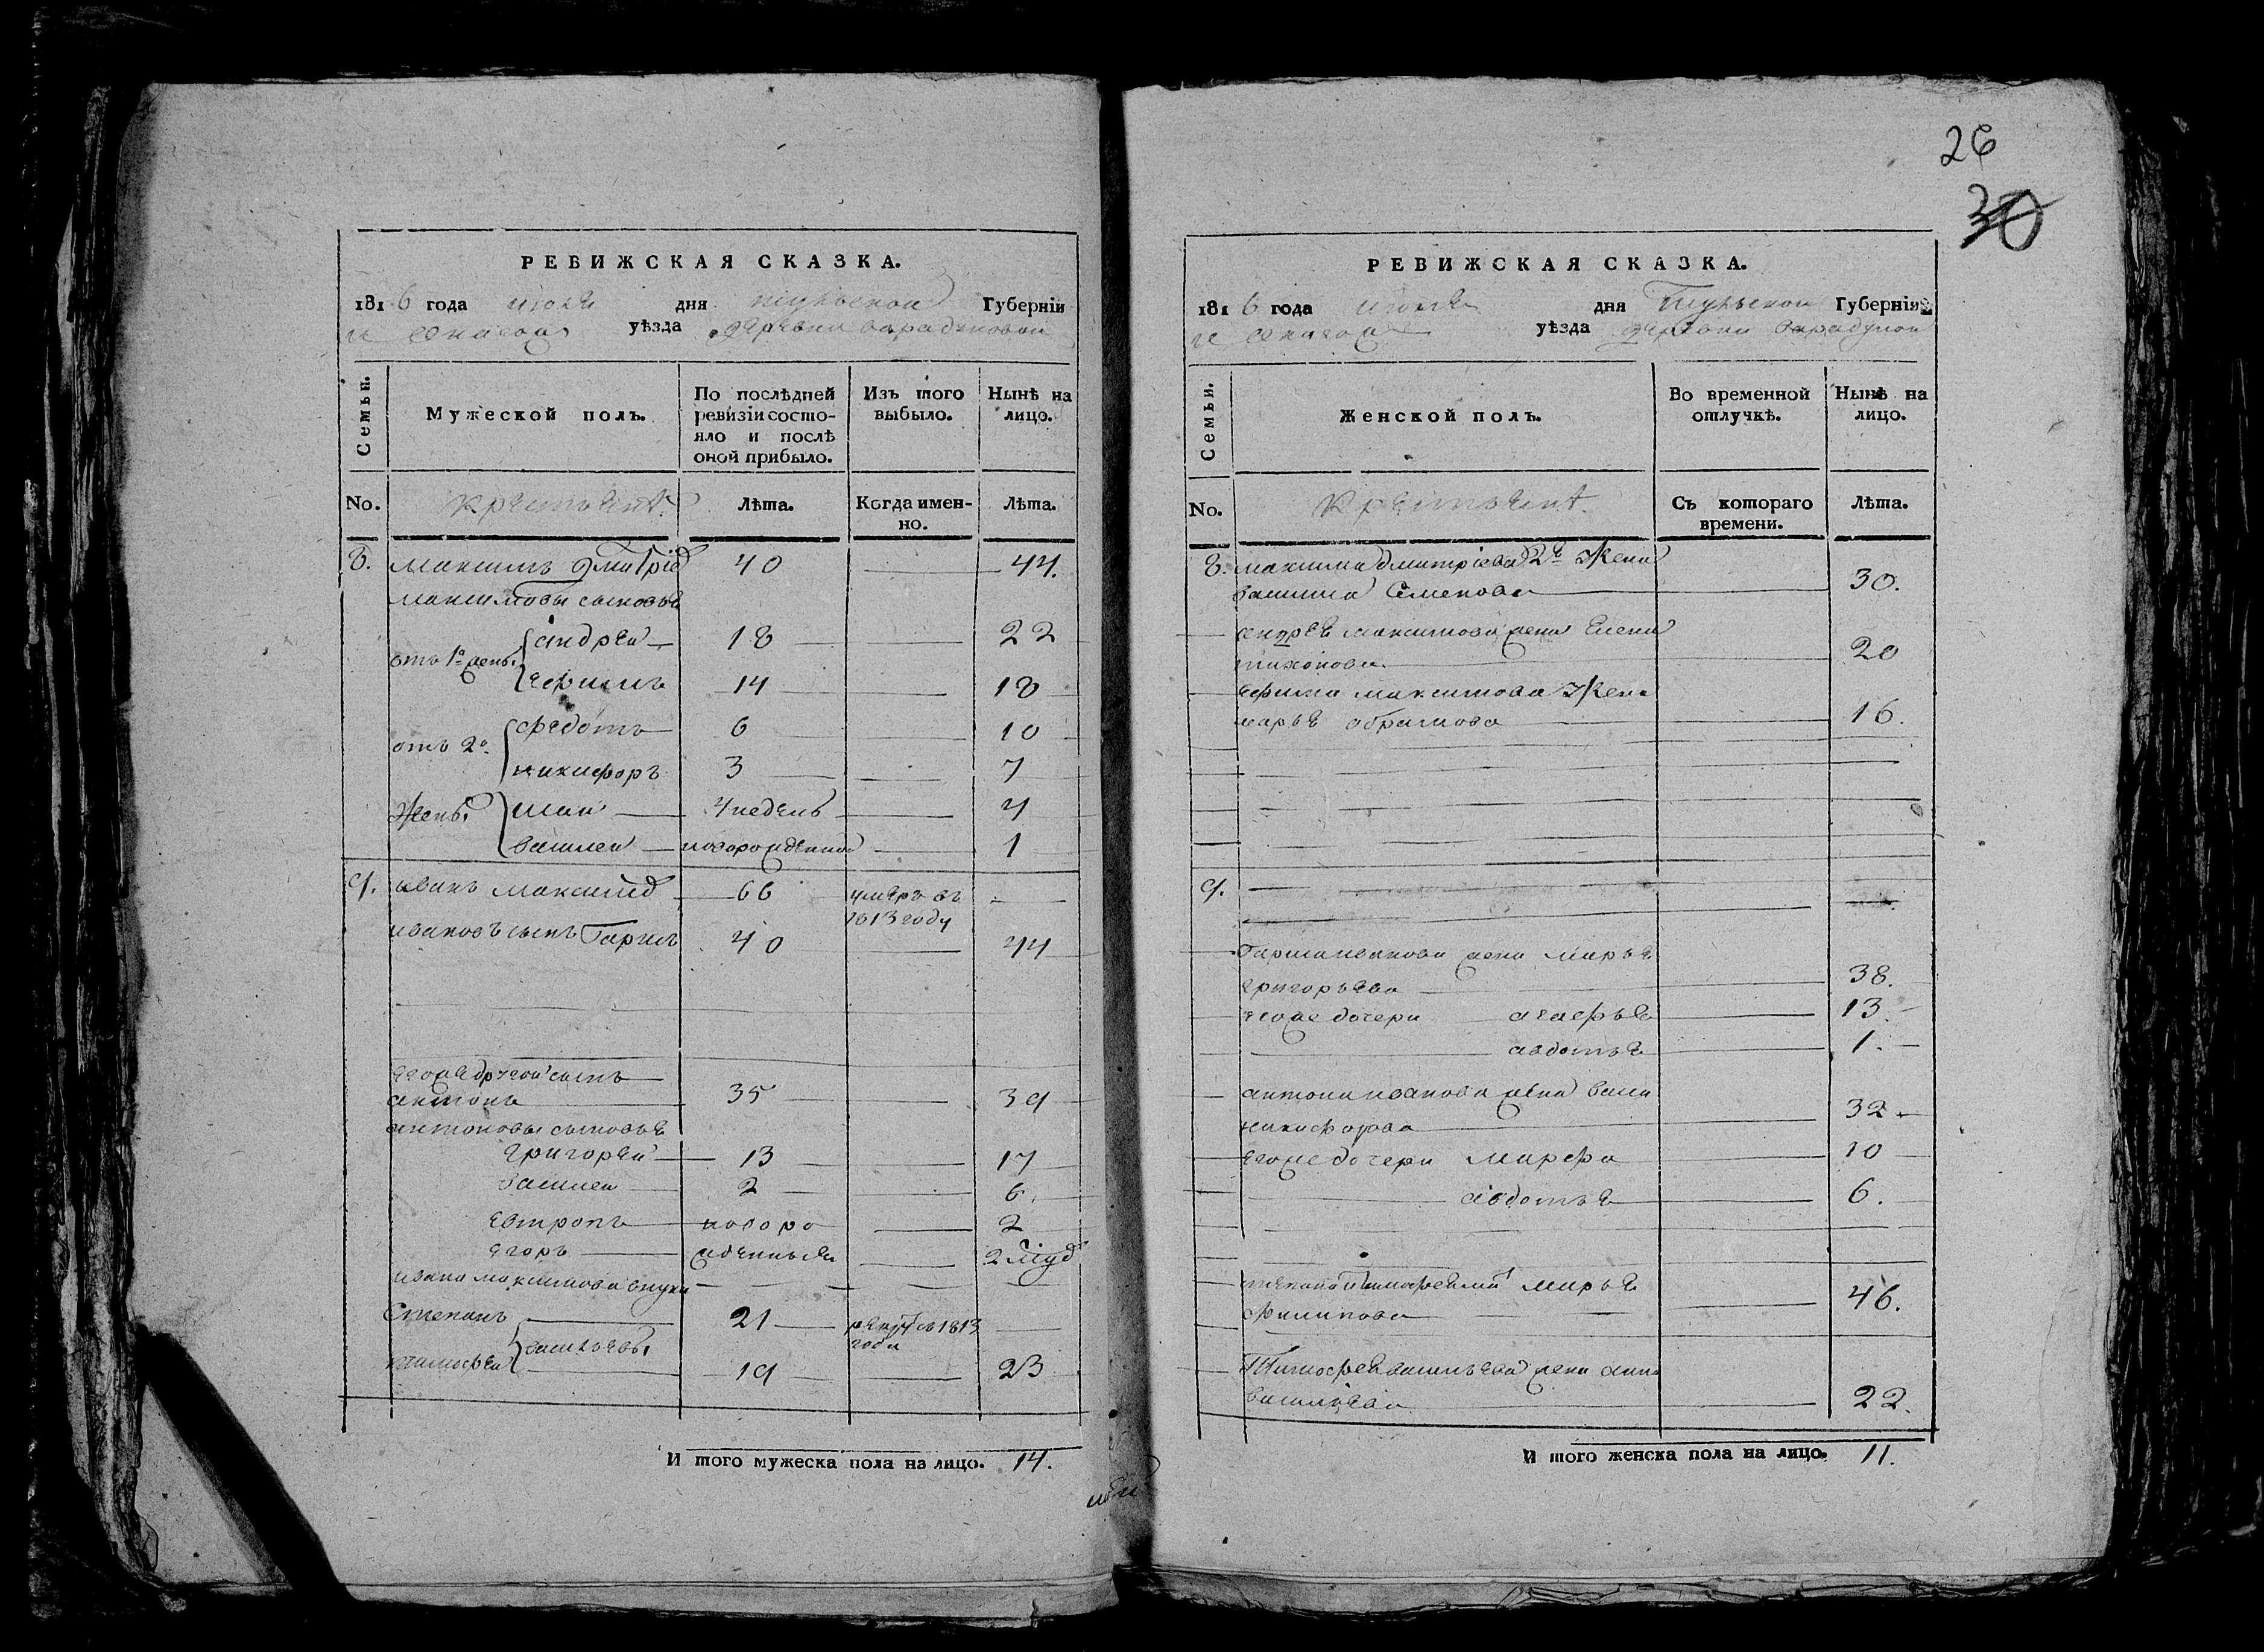 РЕВИЖСКАЯ СКАЗКА.
1816 года июля дня тульской Губернїи
уѣзда деревни
Семьи.
Мужеской полъ.
По послѣдней ревизїи состо-
яло и послѣ
оной прибыло.
Изъ того
выбыло.
Нынѣ на
лицо.
No.
крестьянѣ
Лѣта.
Когда имен-
но.
Лѣта.
8. максимъ Дмитрїев 40 44.
максимовы сыновья
от 1й жены андрей 18 22
ефимъ 14 18
отъ 2й федотъ 6 10
никифоръ 3 7
жены 4 недель 4
василеи новорожденной 1
9. иванъ максимов 66 умеръ въ
1813 году
ивановъ сынъ 40 44
егоже другой сынъ
антонъ 35 39
антоновы сыновья
григореи 13 17
василеи 2 6.
евтропъ новоро 2
егоръ жденныя 2
ивана максимова внуки
Степанъ 21 1813
года
васильевы
тимофеи 19 23
И того мужеска пола на лицо. 14.
26
30
РЕВИЖСКАЯ СКАЗКА.
1816 года июля дня Тульской Губернїи
уѣзда деревни
Семьи.
Женской полъ.
Во временной
отлучкѣ.
Нынѣ на
лицо.
No.
Крестьянѣ.
Съ котораго
времени.
Лѣта.
8. максима дмитрїева 2я Жена
Семенова 30.
андрея максимова жена Елена
тихонова 20
ефима максимова Жена
марья абрамова 16.
9.
ивановa жена марья
григорьева 38.
егоже дочери агафья 13.
авдотья 1.
антона иванова жена
никифорова 32
егоже дочери марфа 10
авдотья 6.
марья
филипова 46.
Тимофея васильева жена анна
василїева 22.
И того женска пола на лицо. 11.